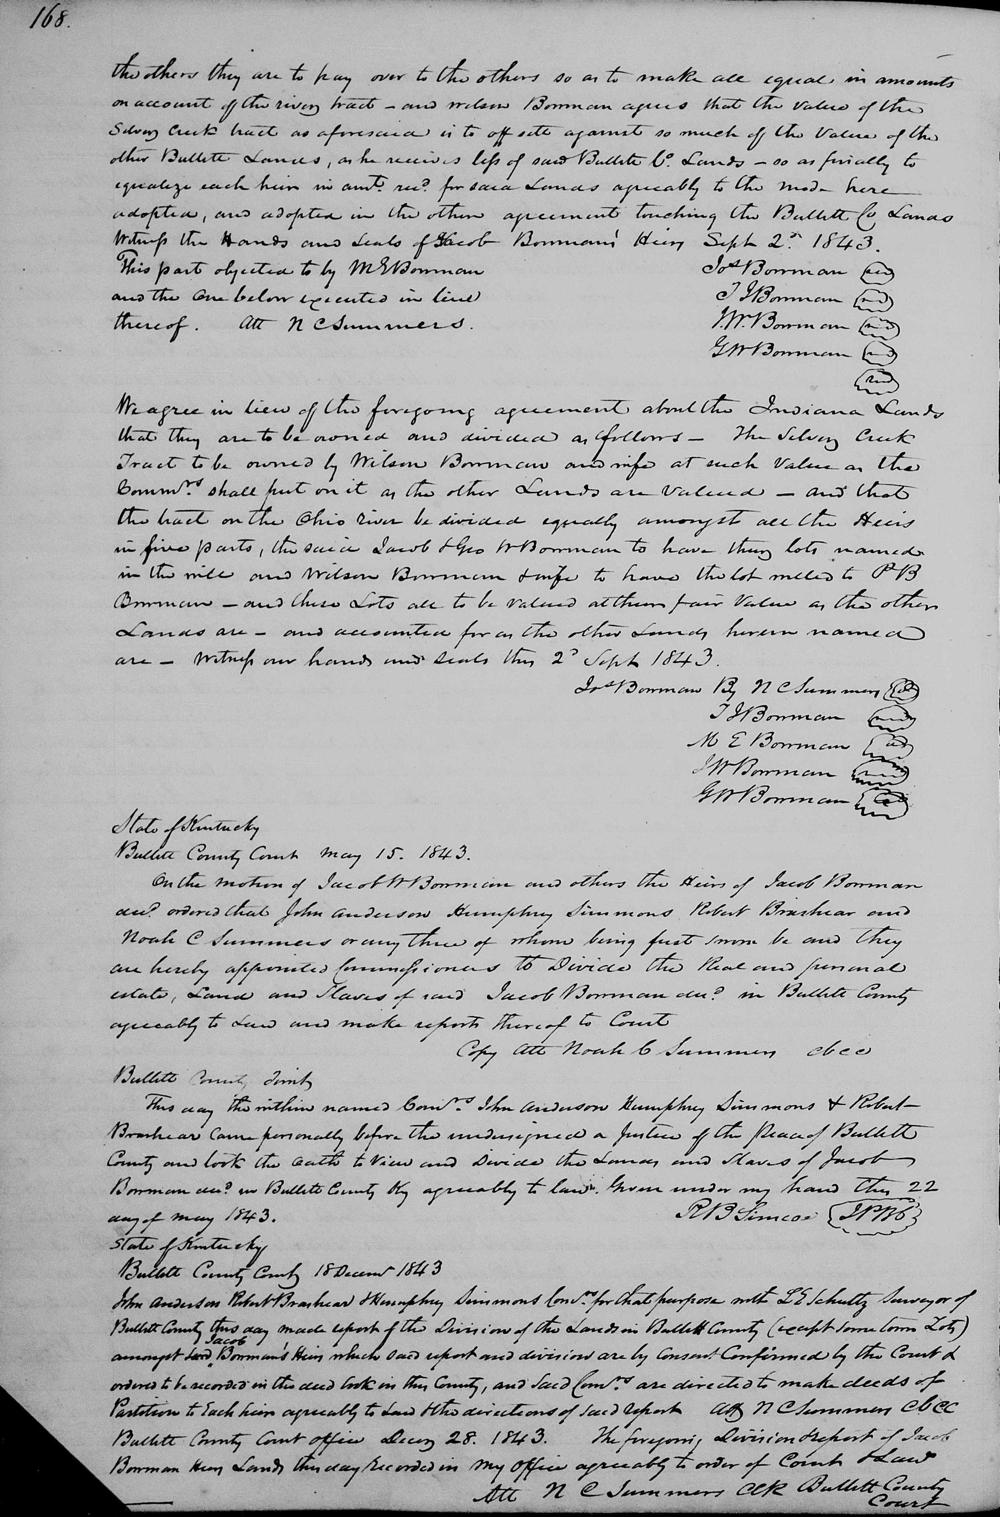 168.
the others they are to pay over to the others so as to make all equal in amounts
on account of the river tract - and Wilson Bowman agrees that the value of the
Silver Creek tract as aforesaid is to off sett against so much of the value of the
other Bullitt Lands, as he receives less of said Bullitt Co. Lands - so as finally to
equalize each heir in amt. rec.d for said Lands agreeably to the mode here
adopted, and adopted in the other agreement touching the Bullitt Co Lands
Witness the Hands and seals of Jacob Bowman's Heirs Sept 2.d 1843.
This part objected to by M E Bowman
and the one below executed in lieu
thereof. Att N C Summers.
Jos Bowman
T J Bowman
J. W. Bowman
G W Bowman
We agree in lieu of the foregoing agreement about the Indiana Lands
that they are to be owned and divided as follows - The Silver Creek
Tract to be owned by Wilson Bowman and wife at such value as the
Comm.rs shall put on it as the other Lands are valued - and that
the tract on the Ohio river be divided equally amongst all the Heirs
in five parts, the said Jacob & Geo W Bowman to have they lots named
in the will and Wilson Bowman & wife to have the lot willed to P B
Bowman - and these Lots all to be valued at their fair value as the other
Lands are - and accounted for as the other Lands herein named
are - Witness our hands and seals this 2d Sept 1843.
Jos Bowman By N C Summers
T J Bowman
M E Bowman
J W Bowman
G W Bowman
State of Kentucky
Bullitt County Court May 15. 1843.
On the motion of Jacob W Bowman and others the Heirs of Jacob Bowman
dec.d ordered that John Anderson Humphrey Simmons Robert Brashear and
Noah C Summers or any three of whom being first sworn be and they
are hereby appointed Commissioners to Divide the Real and personal
estate, Land and Slaves of said Jacob Bowman dec.d in Bullitt County
agreeably to Law and make report thereof to Court
Copy Att Noah C Summers cbcc
Bullitt County
This day the within named Com.rs John Anderson Humphrey Simmons & Robert
Brashear came personally before the undersigned a Justice of the Peace of Bullitt
County and took the oath to View and Divide the Lands and Slaves of Jacob
Bowman dec.d in Bullitt County Ky agreeably to law. Given under my hand this 22
day of May 1843. R B Simcoe JPBC
State of Kentucky
Bullitt County 18 Decem.r 1843
John Anderson Robert Brashear & Humphrey Simmons Com.rs for that purpose with L E Schultz Surveyor of
Bullitt County this day made report of the Division of the Lands in Bullitt County (except some town Lots)
amongst said Jacob Bowman's Heirs which said report and division are by consent Confirmed by the Court &
ordered to be recorded in the deed book in this County, and said Com.rs are directed to make deeds of
Partition to Each heir agreeably to Law & the directions of said report Att N C Summers cbcc
Bullitt County Court office Decem 28. 1843. The foregoing Division & report of Jacob
Bowman Heirs Lands this day Recorded in my office agreeably to order of Court & Law
Att N C Summers Clk Bullitt County
Court